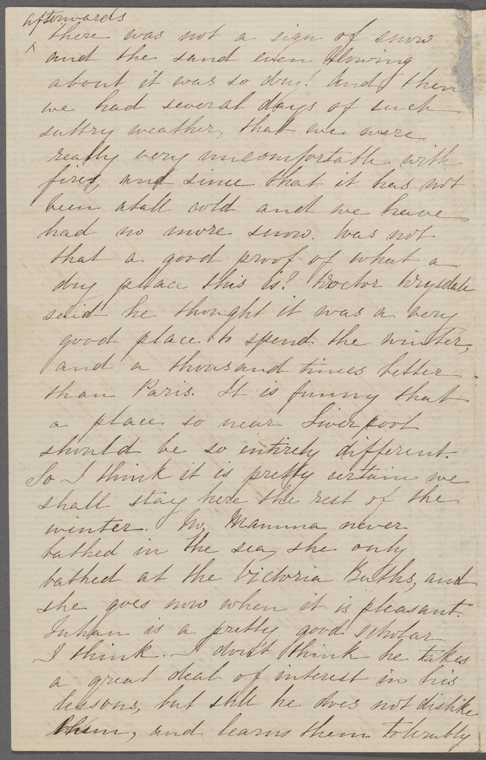 afterwards
^ there was not a sign of snow
and the sand even blowing
about it was so dry! And then
we had several days of such
sultry weather, that we were
really very uncomfortable with
fires, and since that it has not
been atall cold and we have
had no more snow. Was not
that a good proof of what a
dry place this is? Doctor Drysdale
said he thought it was a very
good place to spend the winter,
and a thousand times better
than Paris. It is funny that
a place so near Liverpool
should be so entirely different.
So I think it is pretty certain we
shall stay here the rest of the
winter. No, Mamma never
bathed in the sea, she only
bathed at the Victoria Baths, and
she goes now when it is pleasant.
Julian is a pretty good scholar
I think. I don't think he takes
a great deal of interest in his
lessons, but still he does not dislike
them, and learns them tolerably